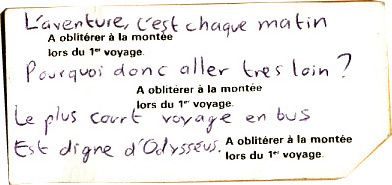 L'aventure, c'est chaque matin
A oblitérer à la montée
lors du 1er voyage.
Pourquoi donc aller tres loin ?
A oblitérer à la montée
lors du 1er voyage.
Le plus court voyage en bus
Est digne d'Odysséus.
A oblitérer à la montée
lors du 1er voyage.